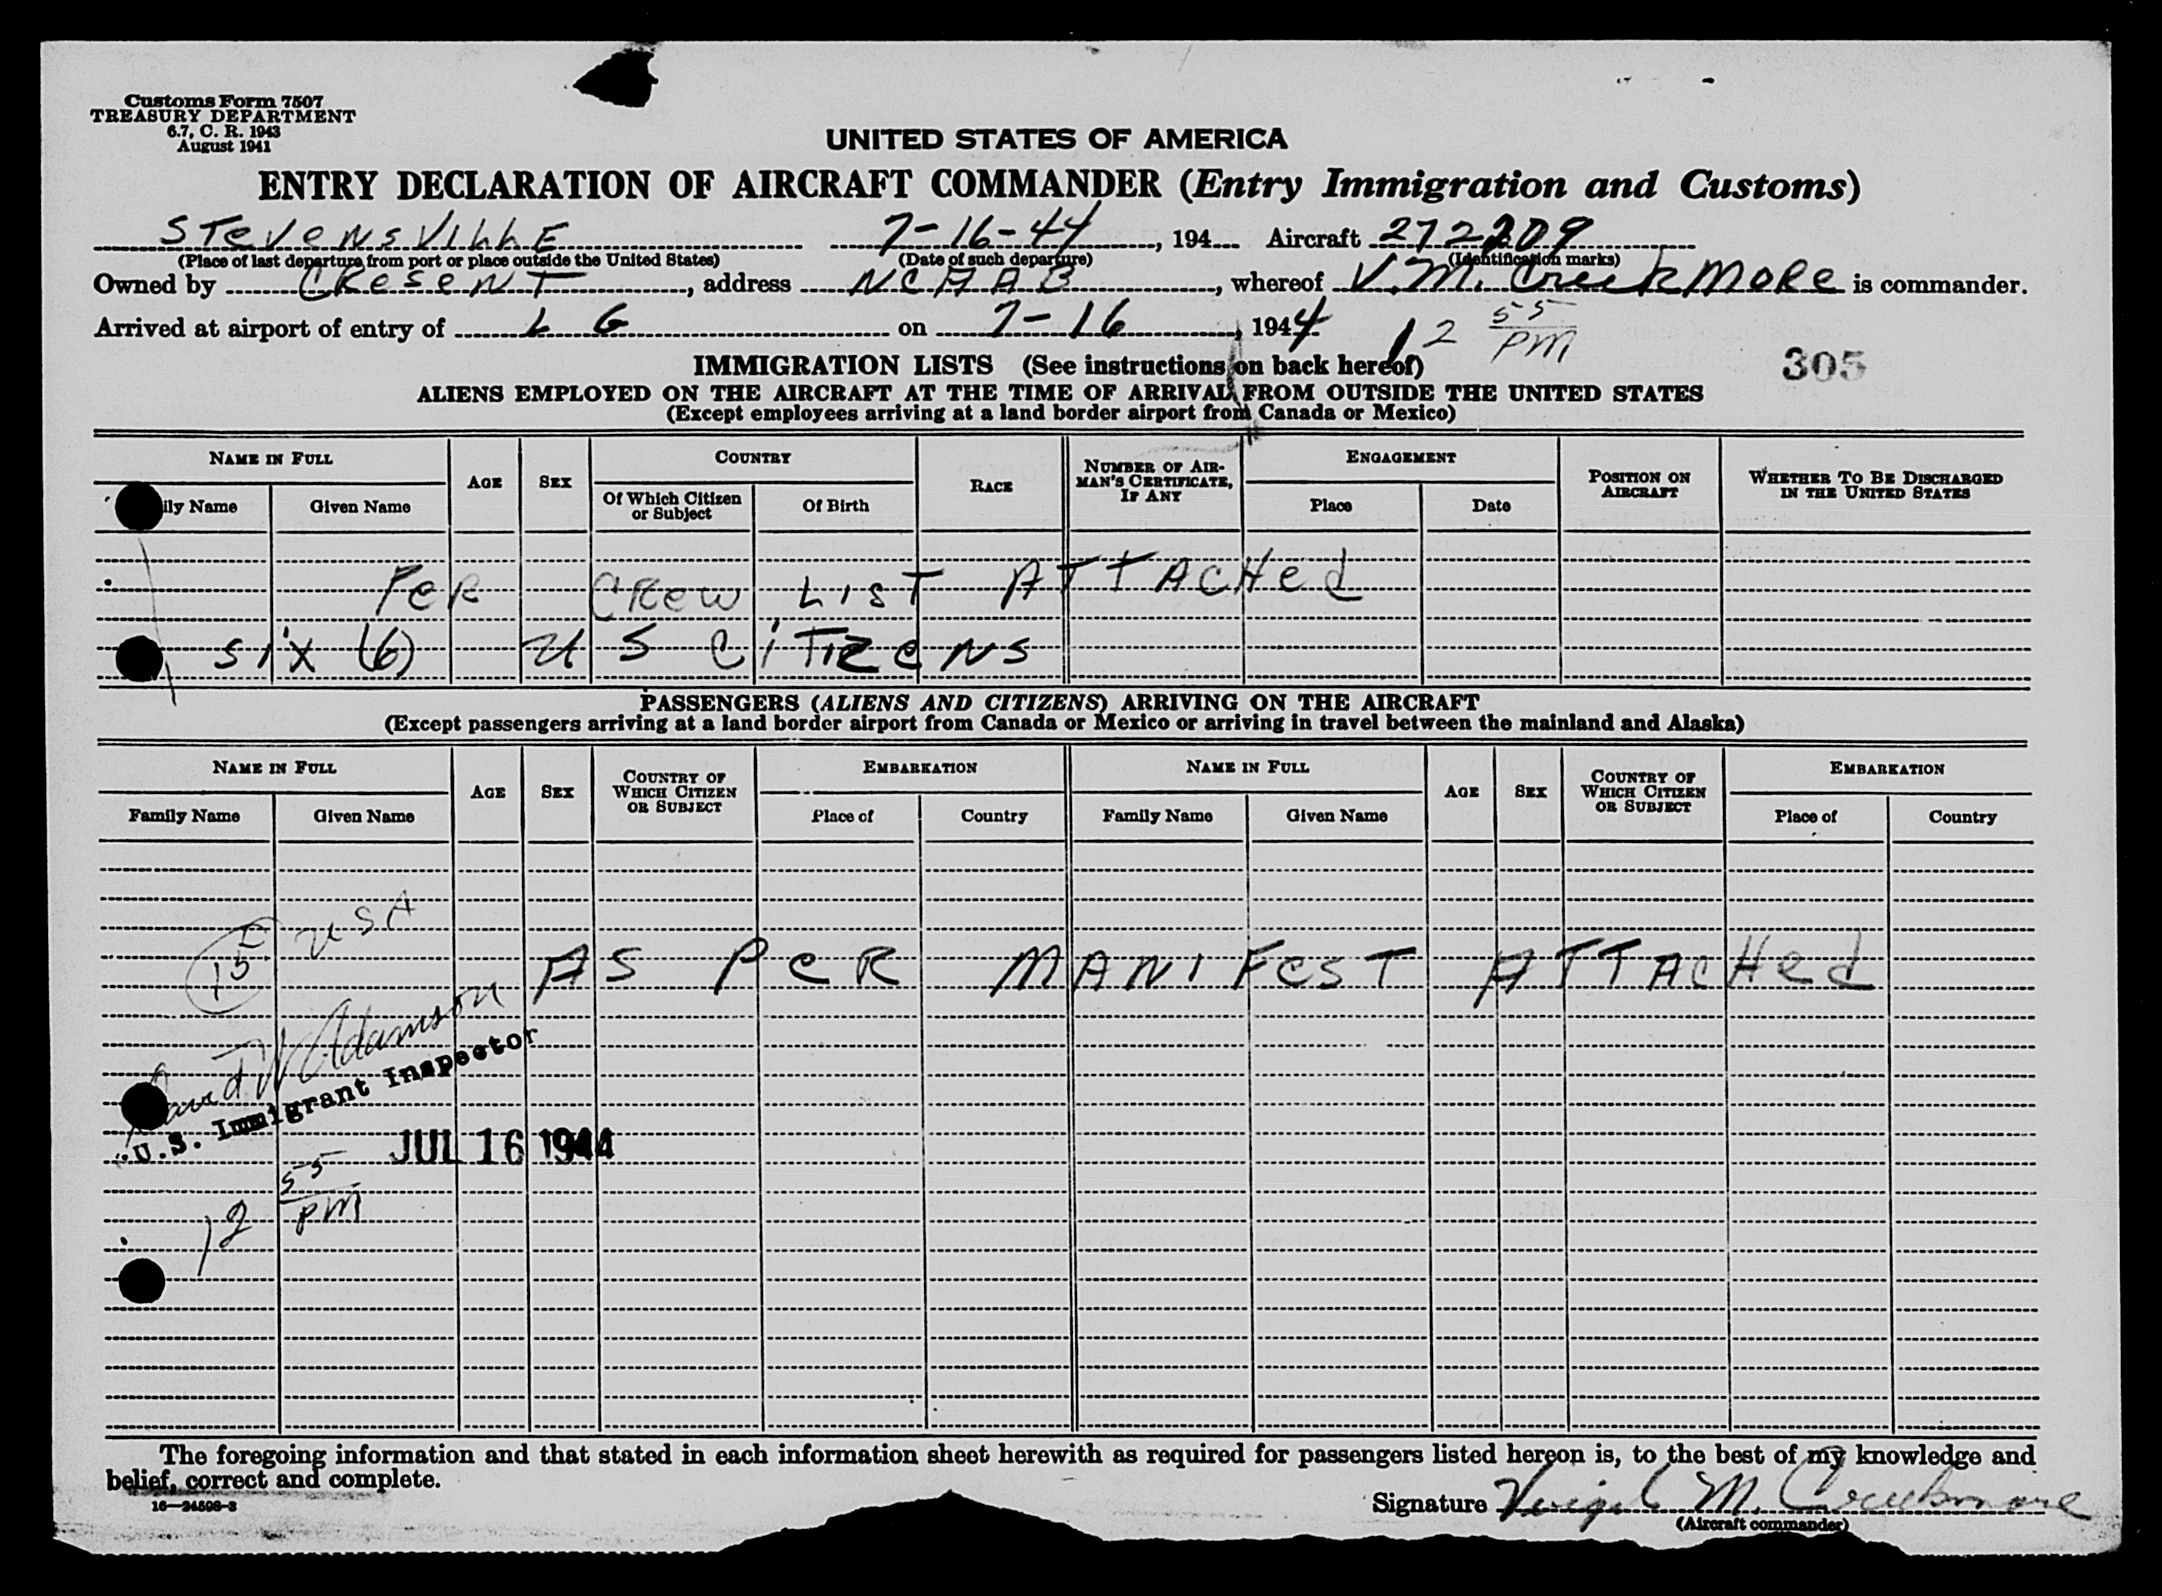 Customs Form 7507
TREASURY DEPARTMENT
6.7, C. R. 1943
August 1941
UNITED STATES OF AMERICA
ENTRY DECLARATION OF AIRCRAFT COMMANDER (Entry Immigration and Customs)
STevensVille 7-16-44, 194 Aircraft 272209
(Place of last departure from port or place outside the United States) (Date of such departure) (Identification marks)
Owned by CResenT, address NCAAB, whereof V.M. CreekmoRe is commander.
Arrived at airport of entry of L G on 7-16, 1944 12 55 PM
305
IMMIGRATION LISTS (See instructions on back hereof)
ALIENS EMPLOYED ON THE AIRCRAFT AT THE TIME OF ARRIVAL FROM OUTSIDE THE UNITED STATES
(Except employees arriving at a land border airport from Canada or Mexico)
NAME IN FULL AGE SEX COUNTRY RACE NUMBER OF AIRMAN'S CERTIFICATE, IF ANY ENGAGEMENT POSITION ON AIRCRAFT WHETHER TO BE DISCHARGED IN THE UNITED STATES
ily Name Given Name Of Which Citizen or Subject Of Birth Place Date
PeR CRew LisT ATTACHed
Six (6) U S CiTizeNs
PASSENGERS (ALIENS AND CITIZENS) ARRIVING ON THE AIRCRAFT
(Except passengers arriving at a land border airport from Canada or Mexico or arriving in travel between the mainland and Alaska)
NAME IN FULL AGE SEX COUNTRY OF WHICH CITIZEN OR SUBJECT EMBARKATION NAME IN FULL AGE SEX COUNTRY OF WHICH CITIZEN OR SUBJECT EMBARKATION
Family Name Given Name Place of Country Family Name Given Name Place of Country
15 USA
AS PeR MANIFesT ATTACHed
David W Adamson
U.S. Immigrant Inspector
JUL 16 1944
12 55 PM
The foregoing information and that stated in each information sheet herewith as required for passengers listed hereon is, to the best of my knowledge and
belief, correct and complete.
16—24598-2
Signature Virgil M. Creekmore
(Aircraft commander)